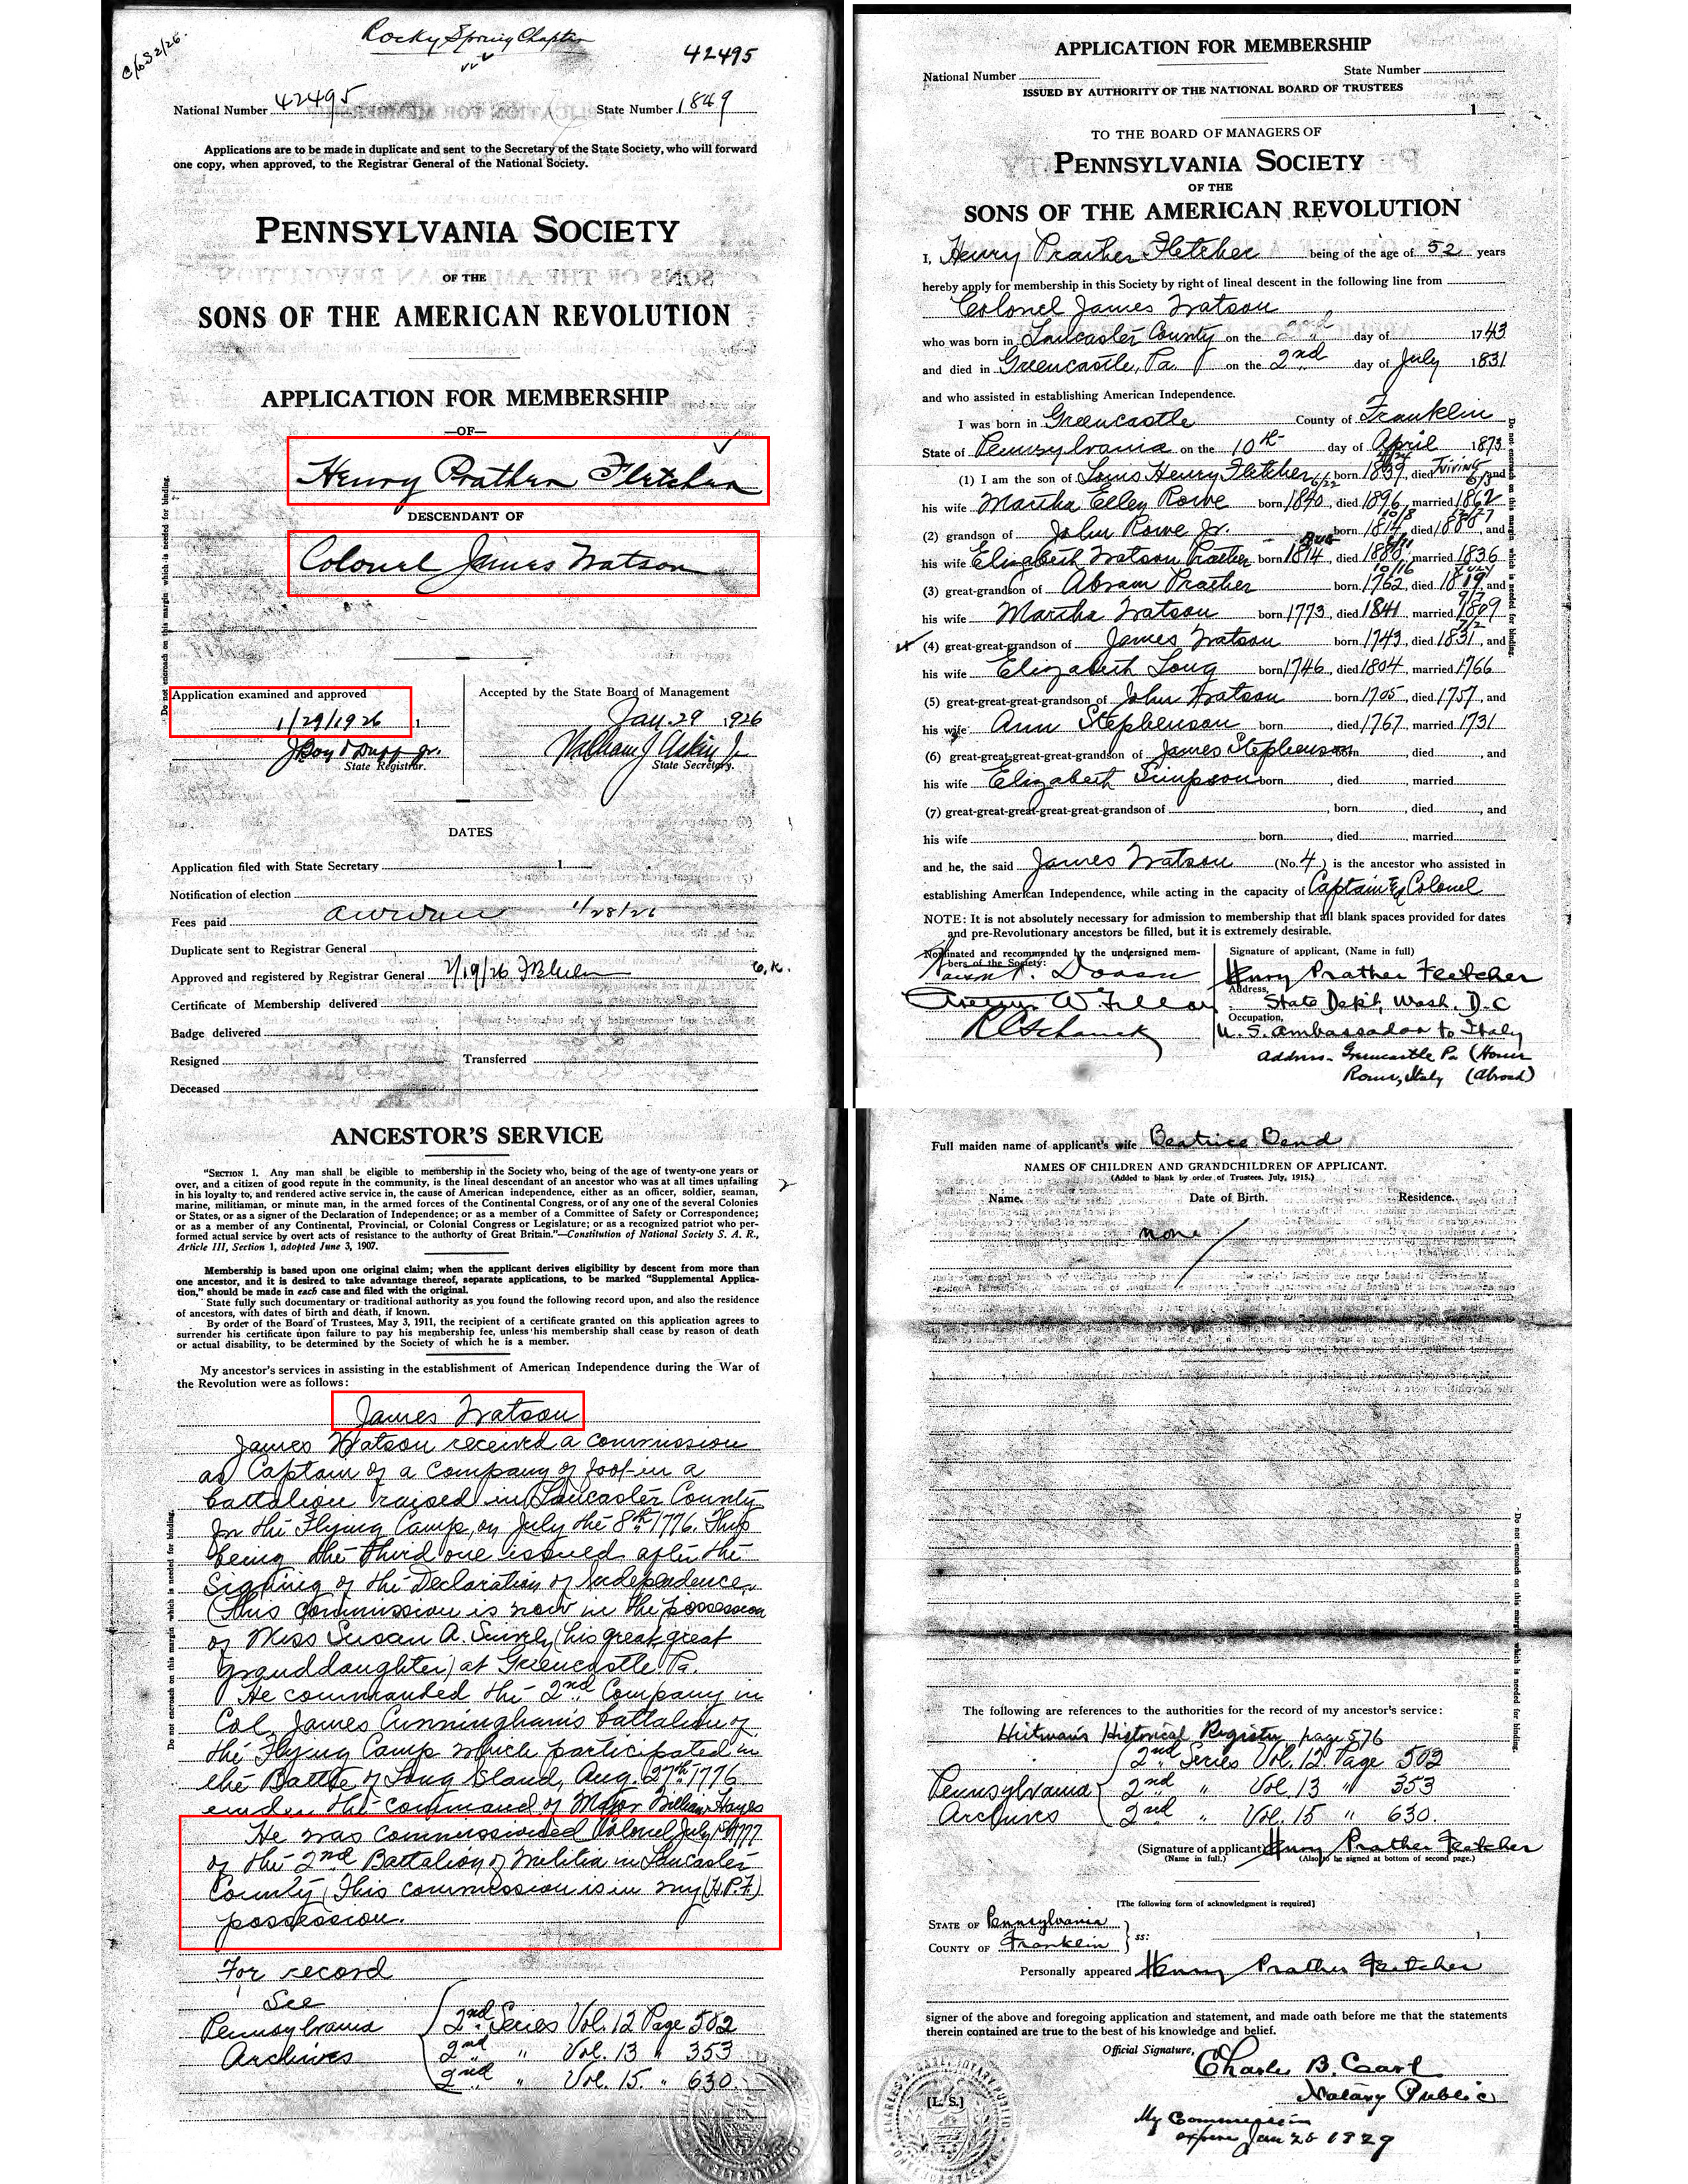 Rocky Spring Chapter
42495
National Number 42495 State Number 1849
Applications are to be made in duplicate and sent to the Secretary of the State Society, who will forward
one copy, when approved, to the Registrar General of the National Society.
PENNSYLVANIA SOCIETY
OF THE
SONS OF THE AMERICAN REVOLUTION
APPLICATION FOR MEMBERSHIP
—OF—
Henry Prather Fletcher
DESCENDANT OF
Colonel James Watson
Do not encroach on this margin which is needed for binding.
Application examined and approved
1/29/1926 1
State Registrar.
Accepted by the State Board of Management
Jan. 29 1926
State Secretary.
DATES
Application filed with State Secretary 1
Notification of election
Fees paid 1/28/26
Duplicate sent to Registrar General
Approved and registered by Registrar General 2/19/26
Certificate of Membership delivered
Badge delivered
Resigned Transferred
Deceased
APPLICATION FOR MEMBERSHIP
National Number State Number
ISSUED BY AUTHORITY OF THE NATIONAL BOARD OF TRUSTEES
1
TO THE BOARD OF MANAGERS OF
PENNSYLVANIA SOCIETY
OF THE
SONS OF THE AMERICAN REVOLUTION
I, Henry Prather Fletcher being of the age of 52 years
hereby apply for membership in this Society by right of lineal descent in the following line from
Colonel James Watson
who was born in Lancaster County on the day of 1743
and died in Greencastle, Pa. on the 2nd day of July 1831
and who assisted in establishing American Independence.
I was born in Greencastle County of Franklin
State of Pennsylvania on the 10th day of April 1873
(1) I am the son of Louis Henry Fletcher born 1839, died living and
his wife Martha Elley Rowe born 1840, died 1896, married 1862
(2) grandson of John Rowe Jr. born 1814, died 1880, and
his wife Elizabeth Watson Prather born 1814, died 1880, married 1836
(3) great-grandson of Abram Prather born 1762, died 1819, and
his wife Martha Watson born 1773, died 1841, married 1809
(4) great-great-grandson of James Watson born 1743, died 1831, and
his wife Elizabeth Long born 1746, died 1804, married 1766
(5) great-great-great-grandson of John Watson born 1705, died 1757, and
his wife Ann Stephenson born , died 1767, married 1731
(6) great-great-great-great-grandson of James Stephenson born , died , and
his wife Elizabeth Simpson born , died , married
(7) great-great-great-great-great-grandson of , born , died , and
his wife born , died , married
and he, the said James Watson (No. 4) is the ancestor who assisted in
establishing American Independence, while acting in the capacity of Captain & Colonel
NOTE: It is not absolutely necessary for admission to membership that all blank spaces provided for dates
and pre-Revolutionary ancestors be filled, but it is extremely desirable.
Do not encroach on this margin which is needed for binding.
Nominated and recommended by the undersigned mem-
bers of the Society:
Signature of applicant, (Name in full)
Henry Prather Fletcher
Address, State Dept, Wash. D.C
Occupation,
U. S. Ambassador to Italy
Address - Greencastle Pa (Home
Rome, Italy (Abroad)
ANCESTOR'S SERVICE
"SECTION 1. Any man shall be eligible to membership in the Society who, being of the age of twenty-one years or
over, and a citizen of good repute in the community, is the lineal descendant of an ancestor who was at all times unfailing
in his loyalty to, and rendered active service in, the cause of American independence, either as an officer, soldier, seaman,
marine, militiaman, or minute man, in the armed forces of the Continental Congress, or of any one of the several Colonies
or States, or as a signer of the Declaration of Independence; or as a member of a Committee of Safety or Correspondence;
or as a member of any Continental, Provincial, or Colonial Congress or Legislature; or as a recognized patriot who per-
formed actual service by overt acts of resistance to the authority of Great Britain."—Constitution of National Society S. A. R.,
Article III, Section 1, adopted June 3, 1907.
Membership is based upon one original claim; when the applicant derives eligibility by descent from more than
one ancestor, and it is desired to take advantage thereof, separate applications, to be marked "Supplemental Applica-
tion," should be made in each case and filed with the original.
State fully such documentary or traditional authority as you found the following record upon, and also the residence
of ancestors, with dates of birth and death, if known.
By order of the Board of Trustees, May 3, 1911, the recipient of a certificate granted on this application agrees to
surrender his certificate upon failure to pay his membership fee, unless his membership shall cease by reason of death
or actual disability, to be determined by the Society of which he is a member.
My ancestor's services in assisting in the establishment of American Independence during the War of
the Revolution were as follows:
James Watson
James Watson received a commission
as Captain of a company of foot in a
battalion raised in Lancaster County
In the Flying Camp, on July the 8th 1776. This
being the third one issued after the
Signing of the Declaration of Independence.
(This commission is now in the possession
of Miss Susan A. (his great, great
granddaughter) at Greencastle Pa.
He commanded the 2nd Company in
Col. James Cunningham's battalion of
the Flying Camp which participated in
the Battle of Long Island, Aug. 27th 1776
under the command of Major William Hayes
He was commissioned Colonel July 1st 1777
of the 2nd Battalion of Militia in Lancaster
County (This commission is in my (H.P.F.)
possession.
For record
See
Pennsylvania Archives
2nd Series Vol. 12 Page 502
2nd " Vol. 13 " 353
2nd " Vol. 15 " 630.
Do not encroach on this margin which is needed for binding.
Full maiden name of applicant's wife Beatrice Bend
NAMES OF CHILDREN AND GRANDCHILDREN OF APPLICANT.
(Added to blank by order of Trustees, July, 1915.)
Name. Date of Birth. Residence.
none
Do not encroach on this margin which is needed for binding.
The following are references to the authorities for the record of my ancestor's service:
Heitman's Historical Registry page 576
Pennsylvania Archives
2nd Series Vol. 12 Page 502
2nd " Vol. 13 " 353
2nd " Vol. 15 " 630.
(Signature of applicant) Henry Prather Fletcher
(Name in full.) (Also to be signed at bottom of second page.)
[The following form of acknowledgment is required]
STATE OF Pennsylvania
COUNTY OF Franklin ss: 1
Personally appeared Henry Prather Fletcher
signer of the above and foregoing application and statement, and made oath before me that the statements
therein contained are true to the best of his knowledge and belief.
Official Signature,
Charles B. Carl
Notary Public
[L. S.]
My Commission
expires Jan 26 1929